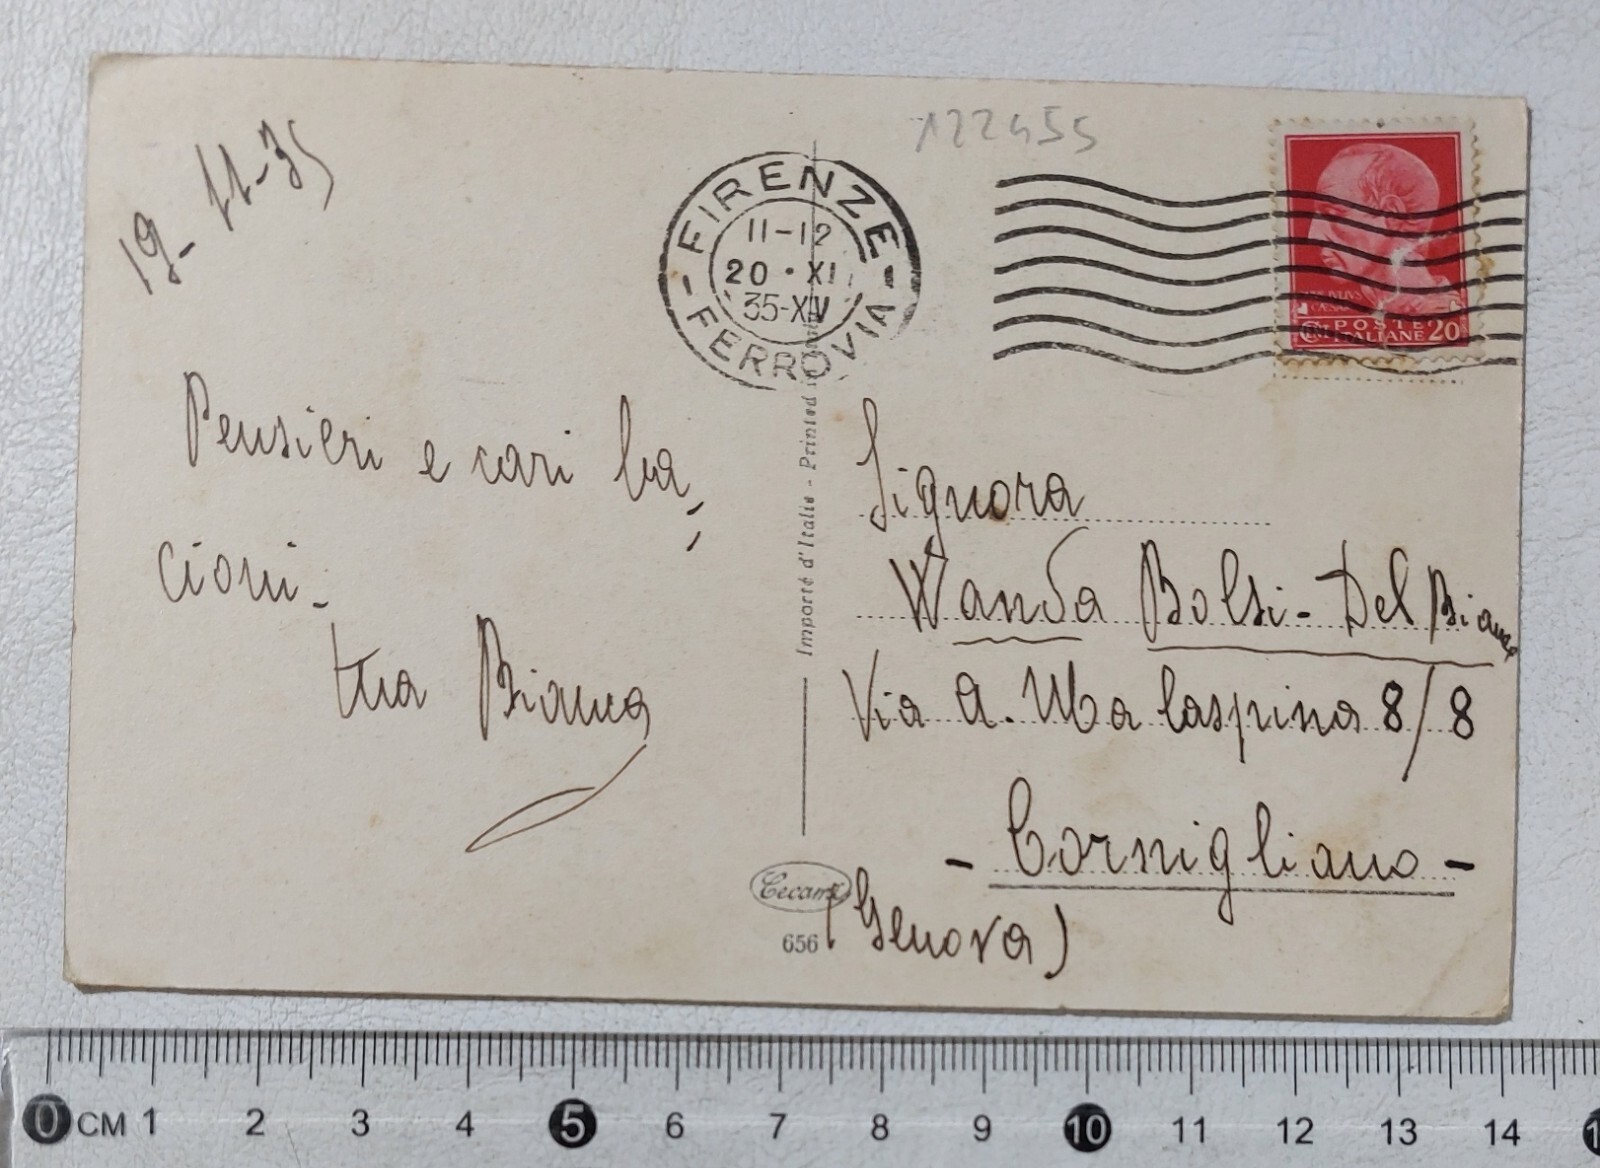 19-11-35
122455
FIRENZE
11-12
20 · XI
35-XIV
FERROVIA
POSTE
ITALIANE 20
Pensieri e cari ba=
cioni-
tua Bianca
Importé d'Italie - Printed
Signora
Wanda Bolsi-Del Bianco
Via A. Malaspina 8/8
- Cornigliano -
(Genova)
Cecami
656
0 CM 1 2 3 4 5 6 7 8 9 10 11 12 13 14